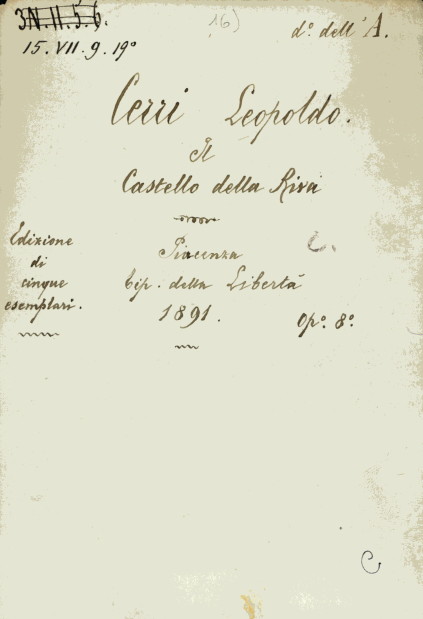 3N.11.5.6.
16)
d.° dell'A.
15.VII.9.19°
Cerri Leopoldo.
Il
Castello della Riva
Edizione
di
cinque
esemplari.
Piacenza
C.
Tip. della Libertà
1891.
Op.° 8.°
C